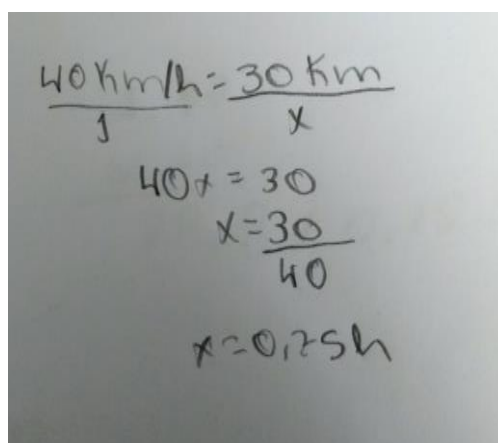 40 Km/h = 30 Km
1 x
40x = 30
x = 30
40
x = 0,75h